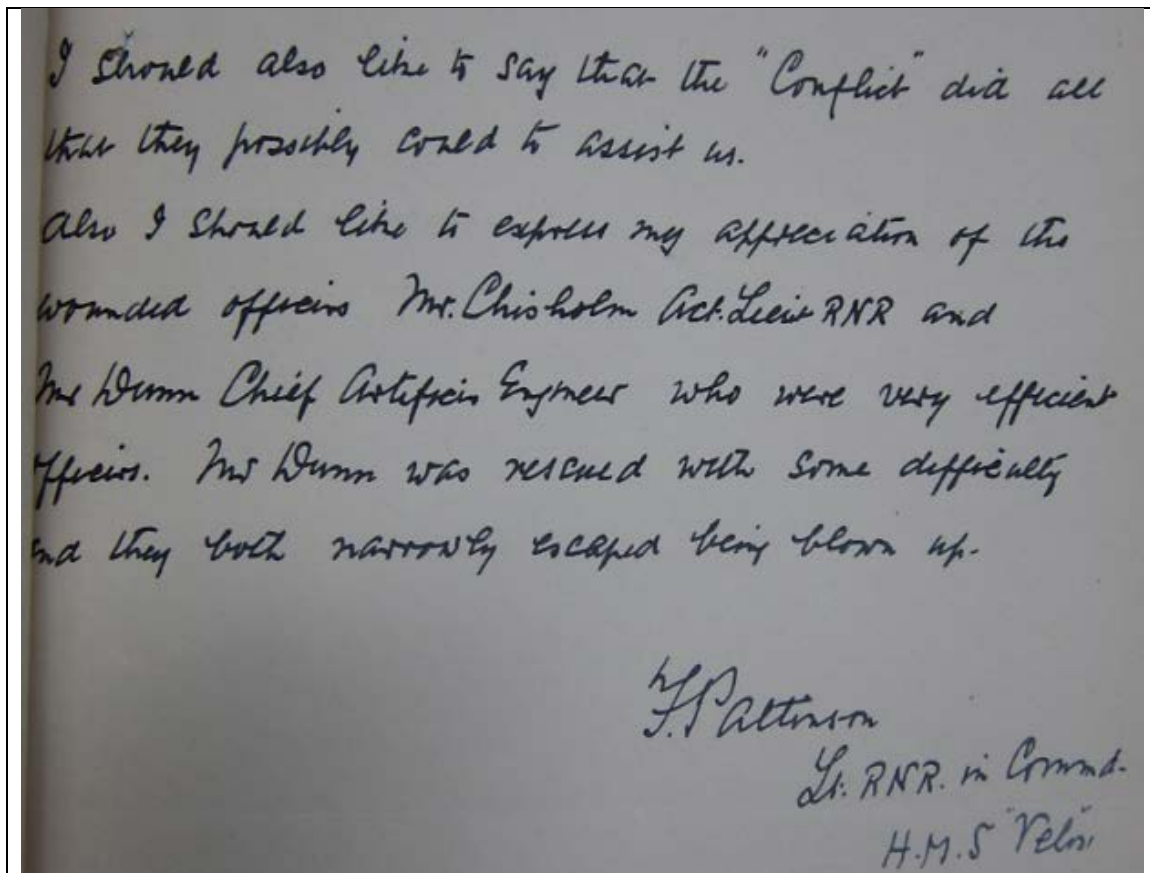 I should also like to say that the "Conflict" did all
that they possibly could to assist us.
Also I should like to express my appreciation of the
wounded officers Mr. Chisholm Act. Lieut RNR and
Mr Dunn Chief Artificer Engineer who were very efficient
officers. Mr Dunn was rescued with some difficulty
and they both narrowly escaped being blown up.
F. Pattinson
Lt. RNR. in Commd.
H.M.S "Velox"